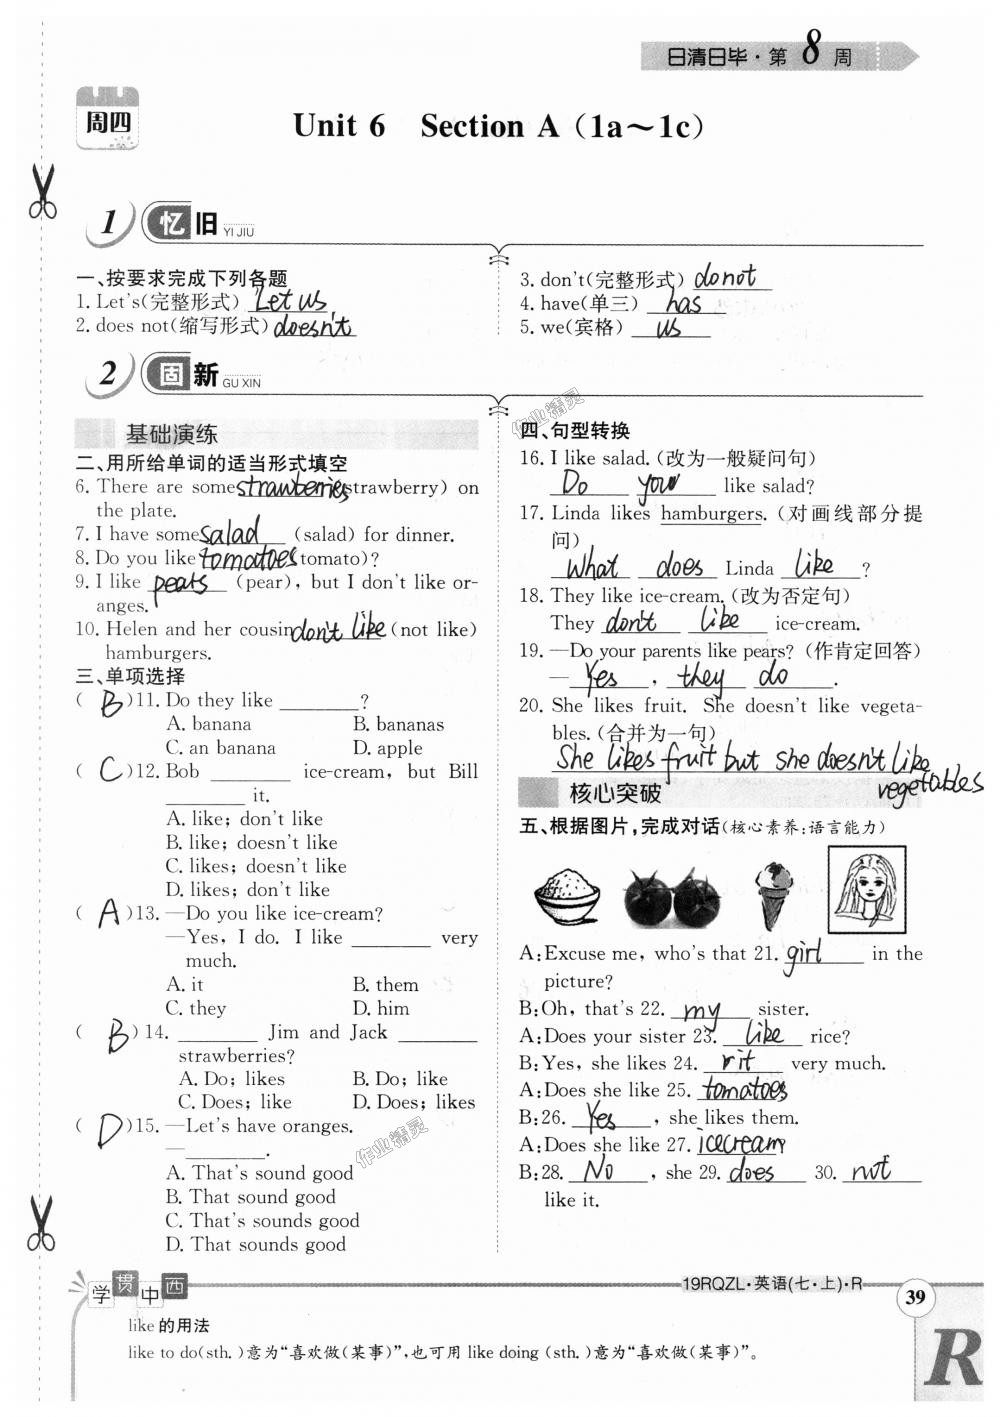 日清日毕·第 8 周
周四
Unit 6 Section A (1a～1c)
1 忆 旧 YI JIU
一、按要求完成下列各题
1. Let's(完整形式) Let us
2. does not(缩写形式) doesn't
3. don't(完整形式) do not
4. have(单三) has
5. we(宾格) us
2 固 新 GU XIN
基础演练
二、用所给单词的适当形式填空
6. There are some strawberries (strawberry) on
the plate.
7. I have some salad (salad) for dinner.
8. Do you like tomatoes tomato)?
9. I like pears (pear), but I don't like or-
anges.
10. Helen and her cousin don't like (not like)
hamburgers.
三、单项选择
( B )11. Do they like ________?
A. banana B. bananas
C. an banana D. apple
( C )12. Bob ________ ice-cream, but Bill
________ it.
A. like; don't like
B. like; doesn't like
C. likes; doesn't like
D. likes; don't like
( A )13. —Do you like ice-cream?
—Yes, I do. I like ________ very
much.
A. it B. them
C. they D. him
( B )14. ________ Jim and Jack ________
strawberries?
A. Do; likes B. Do; like
C. Does; like D. Does; likes
( D )15. —Let's have oranges.
—________.
A. That's sound good
B. That sound good
C. That's sounds good
D. That sounds good
四、句型转换
16. I like salad. (改为一般疑问句)
Do your like salad?
17. Linda likes hamburgers. (对画线部分提
问)
What does Linda like ?
18. They like ice-cream. (改为否定句)
They don't like ice-cream.
19. —Do your parents like pears? (作肯定回答)
— Yes , they do .
20. She likes fruit. She doesn't like vegeta-
bles. (合并为一句)
She likes fruit but she doesn't like
vegetables
核心突破
五、根据图片,完成对话(核心素养:语言能力)
A: Excuse me, who's that 21. girl in the
picture?
B: Oh, that's 22. my sister.
A: Does your sister 23. like rice?
B: Yes, she likes 24. rit very much.
A: Does she like 25. tomatoes
B: 26. Yes , she likes them.
A: Does she like 27. icecream?
B: 28. No , she 29. does 30. not
like it.
作业精灵
作业精灵
学 贯 中 西
19RQZL·英语(七·上)·R
39
like 的用法
like to do(sth.)意为“喜欢做(某事)”,也可用 like doing (sth.)意为“喜欢做(某事)”。
R